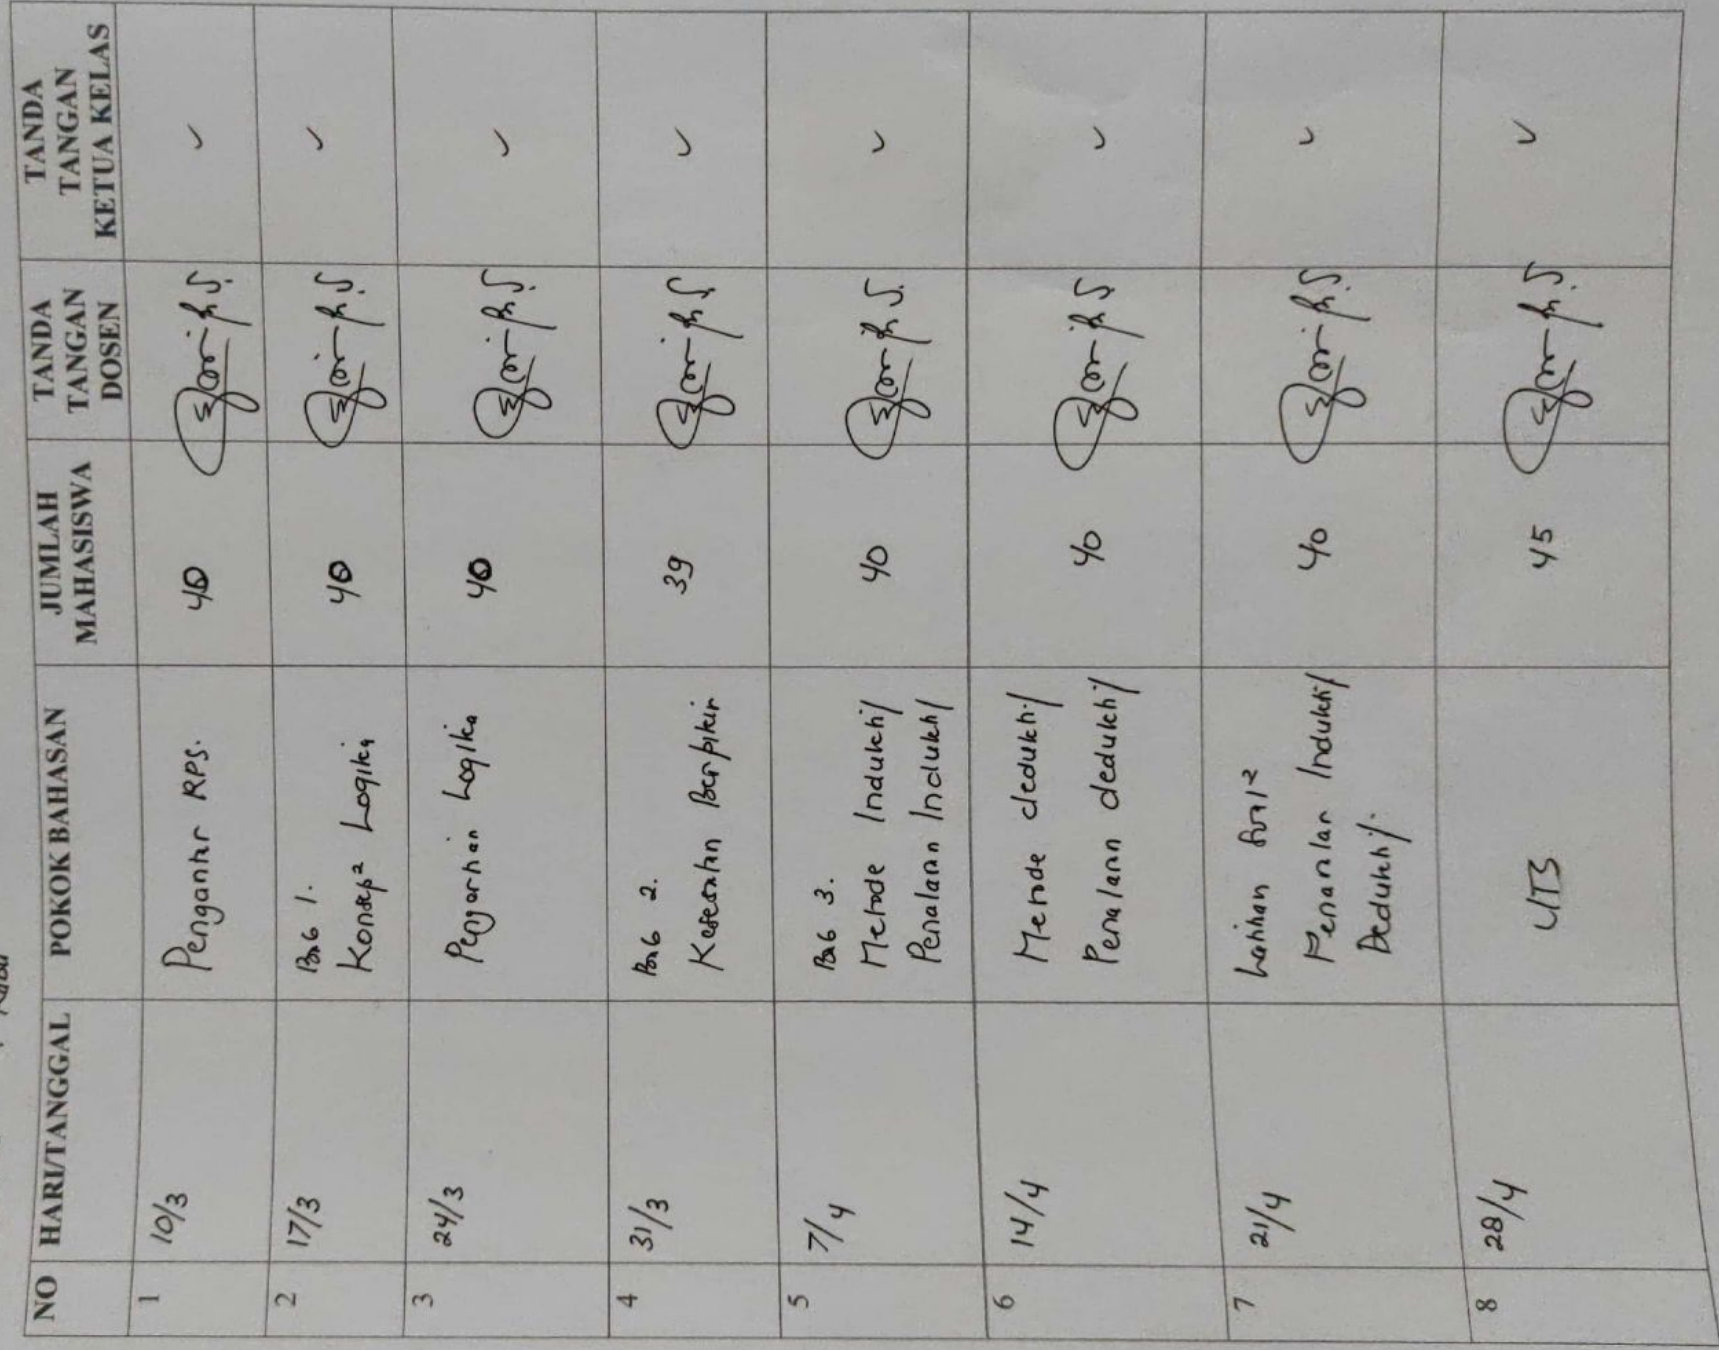 NO HARI/TANGGAL POKOK BAHASAN JUMLAH MAHASISWA TANDA TANGAN DOSEN TANDA TANGAN KETUA KELAS
1 10/3 Pengantar RPS. 40
2 17/3 Bab 1. 40
Konsep² Logika
3 24/3 Pengertian Logika 40
4 31/3 Bab 2. 39
Kesesatan Berpikir
5 7/4 Bab 3. 40
Metode Induktif
Penalaran Induktif
6 14/4 Metode deduktif 40
Penalaran deduktif
7 21/4 Latihan Soal² 40
Penanlar Induktif
Deduktif.
8 28/4 UTS 45